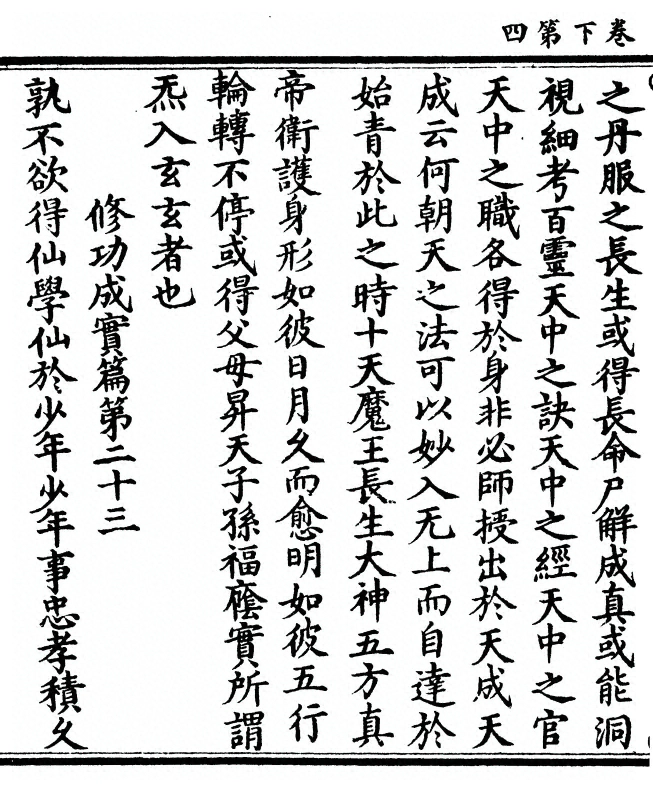 卷下第四
之丹服之長生或得長命尸解成真或能洞
視細考百靈天中之訣天中之經天中之官
天中之職各得於身非必師授出於天成天
成云何朝天之法可以妙入无上而自達於
始青於此之時十天魔王長生大神五方真
帝衛護身形如彼日月久而愈明如彼五行
輪轉不停或得父母昇天子孫福廕實所謂
炁入玄玄者也
修功成實篇第二十三
孰不欲得仙學仙於少年少年事忠孝積久